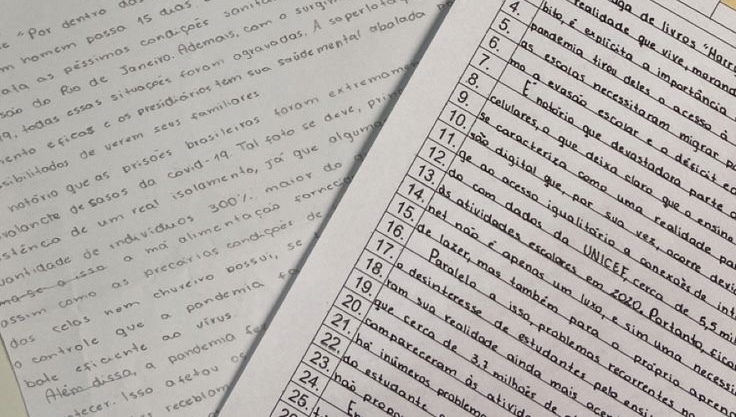 "Por dentro das
m homem possa 15 dias
ata as péssimas condições sanitá
são do Rio de Janeiro. Ademais, com o surgim
19, todas essas situações foram agravadas. A superlota
mento eficaz e os presidiários têm sua saúde mental abalada p
sibilitados de verem seus familiares
notório que as prisões brasileiras foram extremame
valanche de casos da covid-19. Tal fato se deve, prin
stência de um real isolamento, já que alguma
uantidade de indivíduos 300% maior do q
ma-se a isso a má alimentação fornec
assim como as precárias condições de
das celas nem chuveiro possui, se
o controle que a pandemia
bate eficiente ao vírus.
Além disso, a pandemia fez
ntecer. Isso afetou os
receblam
ga de livros "Harry
realidade que vive, morand
4. bito, é explícita a importância
5. pandemia tirou deles o acesso à
6. as escolas necessitaram migrar p
7. ma a evasão escolar e o déficit ed
8. É notório que devastadora parte d
9. celulares, o que deixa claro que o ensino
10. se caracteriza como uma realidade pa
11. são digital que, por sua vez, ocorre devi
12. ge ao acesso igualitário a conexões de int
13. do com dados da UNICEF, cerca de 5,5 mi
14. as atividades escolares em 2020. Portanto, fica
15. net não é apenas um luxo, e sim uma necessi
16. de lazer, mas também para a própria apren
17. Paralelo a isso, problemas recorrentes
18. o desinteresse de estudantes pelo ensi
19. nam sua realidade ainda mais
20. que cerca de 3,7 milhões de
21. compareceram às ativida
22. há inúmeros problem
23. do estudante
24. não propo
25.